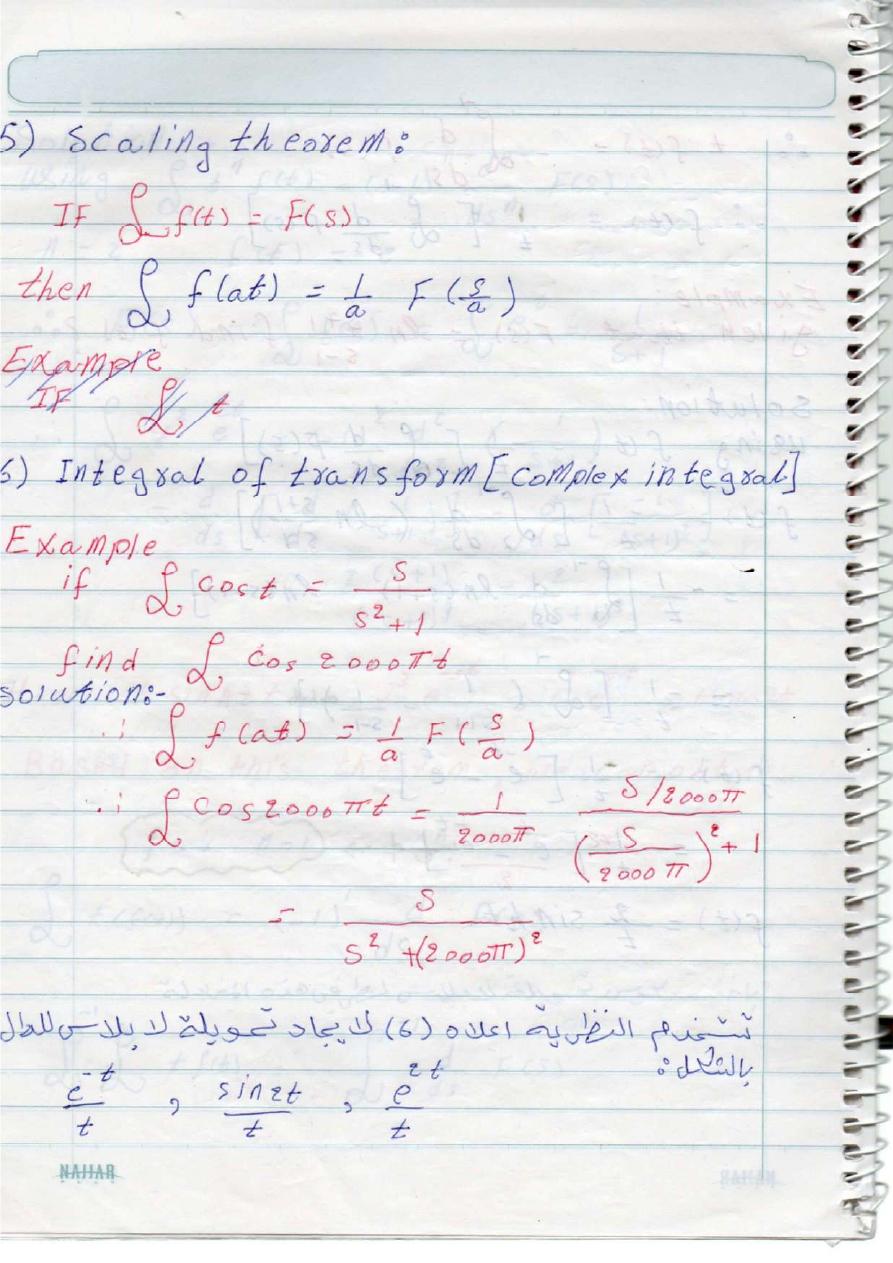 5) Scaling theorem:
IF ℒ f(t) = F(s)
then ℒ f(at) = 1/a F(s/a)
Example
IF ℒ t
6) Integral of transform [complex integral]
Example
if ℒ cos t = s/(s²+1)
find ℒ cos 2000πt
solution:-
∵ ℒ f(at) = 1/a F(s/a)
∴ ℒ cos 2000πt = 1/(2000π) (s/2000π)/((s/(2000π))² + 1)
= s/(s² + (2000π)²)
تستخدم النظرية اعلاه (6) لايجاد تحويلة لابلاس للدوال
بالشكل:
e⁻ᵗ/t , sin2t/t , e²ᵗ/t
NAJJAR